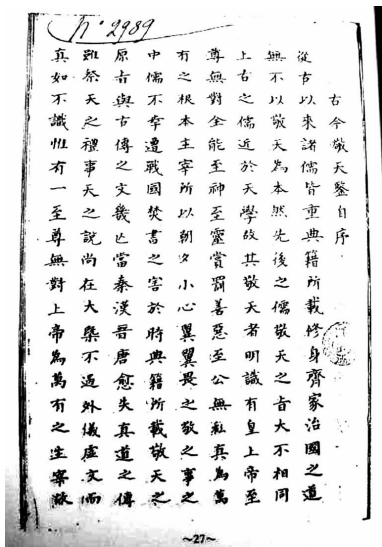 No. 2989
古今敬天鑒自序
從古以來諸儒皆重典籍所載修身齊家治國之道
無不以敬天為本然先後之儒敬天之旨大不相同
上古之儒近於天學故其敬天者明識有皇上帝至
尊無對全能至神至靈賞罰善惡至公無私真為萬
有之根本主宰所以朝夕小心翼翼畏之敬之事之
中儒不幸遭戰國焚書之害於時典籍所載敬天之
原旨與古傳之文幾亡當秦漢晉唐愈失真道之傳
雖祭天之禮事天之說尚在大槩不過外儀虛文而
真如不識惟有一至尊無對上帝為萬有之主宰故
~27~